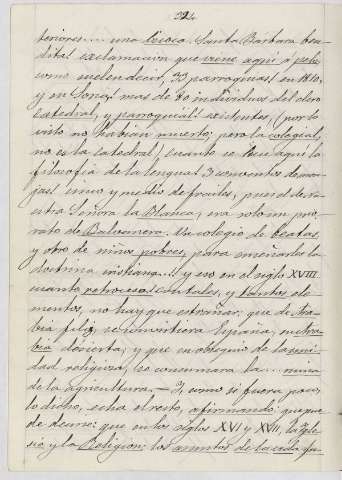 324
teriores.... una bicoca. Santa Barbara ben-
dita! exclamacion que viene aquí a pelo
como suelen decir, 33 parroquias! en 1810,
y en Soria! mas de 80 individuos del clero
catedral, y parroquial! existentes, (por lo
visto no habian muerto; pero la colegial,
no es la catedral) cuanto se luce aquí la
filosofia de la lengua! 3 conventos de mon-
jas! unico y medio de frailes, pues el de nu-
estra Señora la Blanca, era solo un prio-
rato de Balvanera. Un colegio de beatas,
y otro de niños pobres, para enseñarles la
doctrina cristiana...! y eso en el siglo XVIII.
cuanto retroceso! cuantales, y tantos ele-
mentos, no hay que estrañar: que de Ara-
bia feliz, se convirtiera España, en Ara-
bia desierta, y que en obsequio de la
dad religiosa, se consumara la... ruina
de la agricultura. — Y, como si fuera poco,
lo dicho, echa el resto, afirmando: que pue-
de decirse: que en los siglos XVI y XVII, la Igle-
sia, y la Religion: los asuntos de la vida fu-